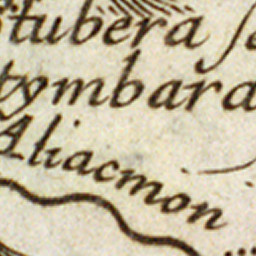 Stubera se
tymbara
Aliacmon